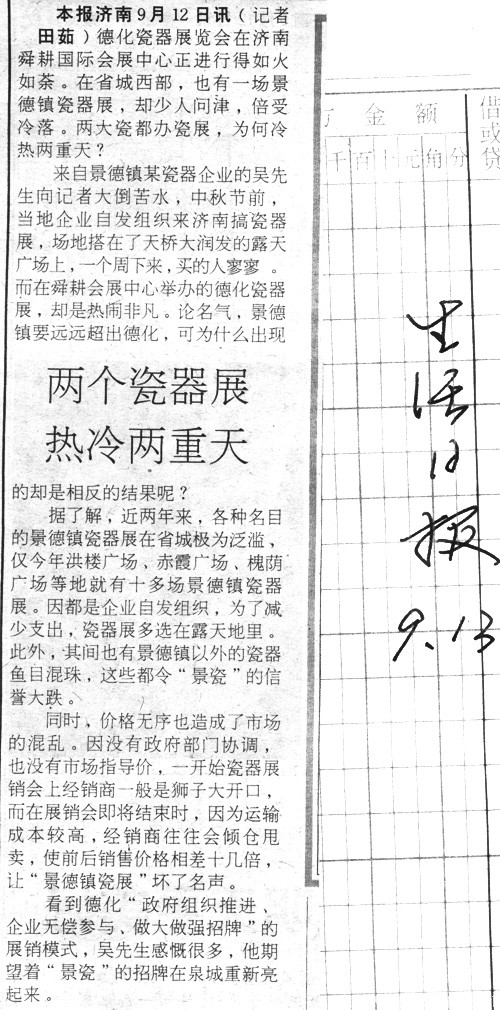 本报济南9月12日讯(记者
田茹)德化瓷器展览会在济南
舜耕国际会展中心正进行得如火
如荼。在省城西部,也有一场景
德镇瓷器展,却少人问津,倍受
冷落。两大瓷都办瓷展,为何冷
热两重天?
来自景德镇某瓷器企业的吴先
生向记者大倒苦水,中秋节前,
当地企业自发组织来济南搞瓷器
展,场地搭在了天桥大润发的露天
广场上,一个周下来,买的人寥寥。
而在舜耕会展中心举办的德化瓷器
展,却是热闹非凡。论名气,景德
镇要远远超出德化,可为什么出现
两个瓷器展
热冷两重天
的却是相反的结果呢?
据了解,近两年来,各种名目
的景德镇瓷器展在省城极为泛滥,
仅今年洪楼广场、赤霞广场、槐荫
广场等地就有十多场景德镇瓷器
展。因都是企业自发组织,为了减
少支出,瓷器展多选在露天地里。
此外,其间也有景德镇以外的瓷器
鱼目混珠,这些都令“景瓷”的信
誉大跌。
同时,价格无序也造成了市场
的混乱。因没有政府部门协调,
也没有市场指导价,一开始瓷器展
销会上经销商一般是狮子大开口,
而在展销会即将结束时,因为运输
成本较高,经销商往往会倾仓甩
卖,使前后销售价格相差十几倍,
让“景德镇瓷展”坏了名声。
看到德化“政府组织推进、
企业无偿参与、做大做强招牌”的
展销模式,吴先生感慨很多,他期
望着“景瓷”的招牌在泉城重新亮
起来。
方金额
千百十元角分
借或贷
生活日报
9.13